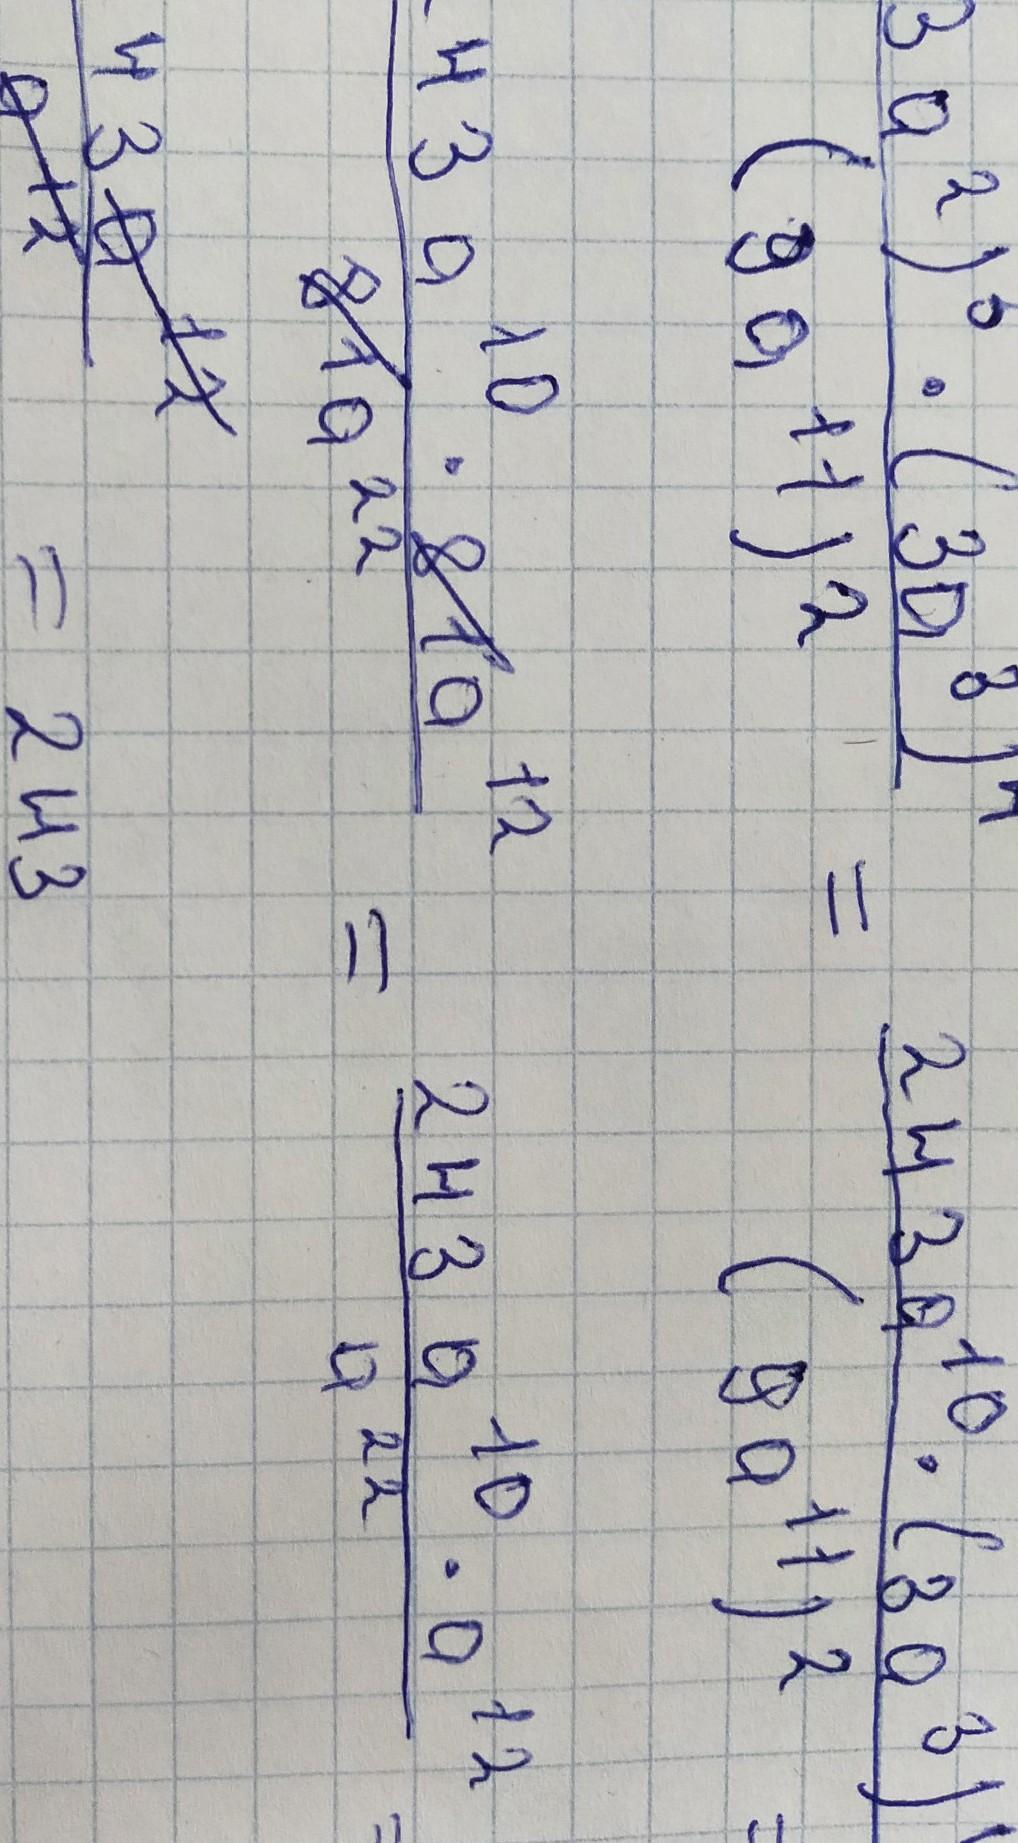 3a²)⁵ · (3a³)⁴ / (9a¹¹)² = 243a¹⁰ · (3a³) / (9a¹¹)² =
43a¹⁰ · 81a¹² / 81a²² = 243a¹⁰ · a¹² / a²² =
43 = 243